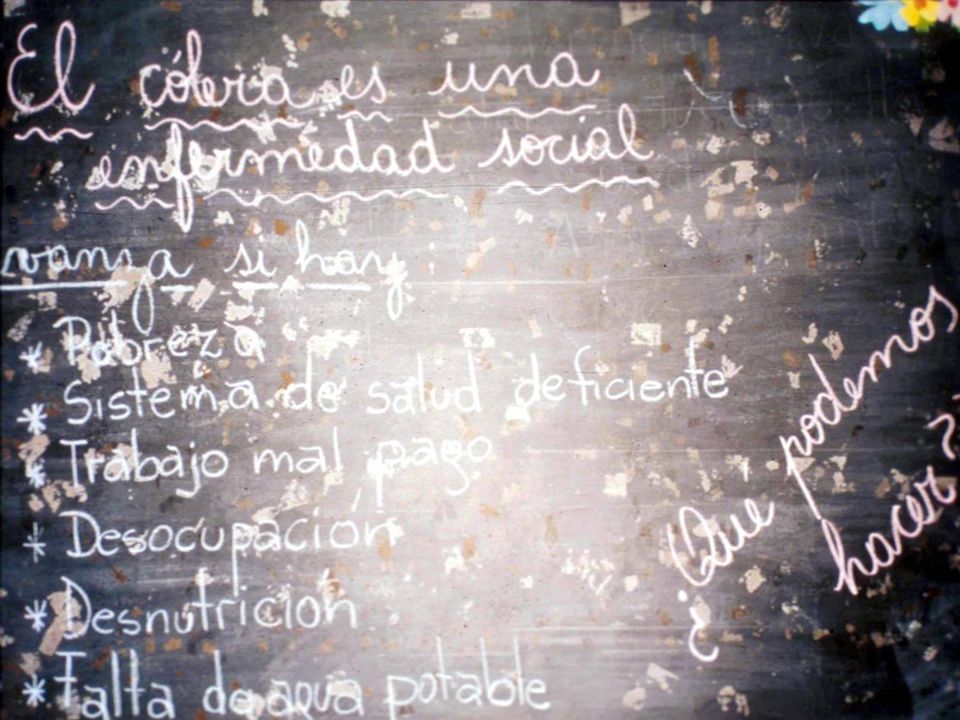 El cólera es una
enfermedad social
vanza si hay:
* Pobreza
* Sistema de salud deficiente
* Trabajo mal pago
* Desocupación
* Desnutrición
* Falta de agua potable
¿Que podemos
hacer?